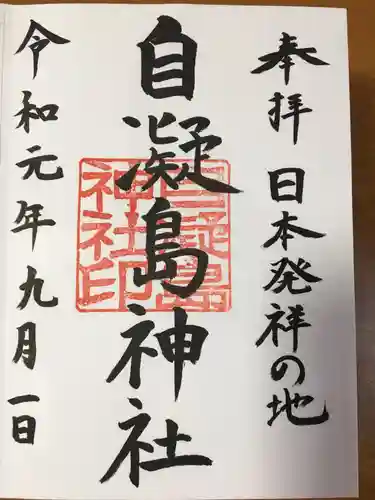 奉拝 日本発祥の地
自凝島神社
自凝島神社印
令和元年九月一日